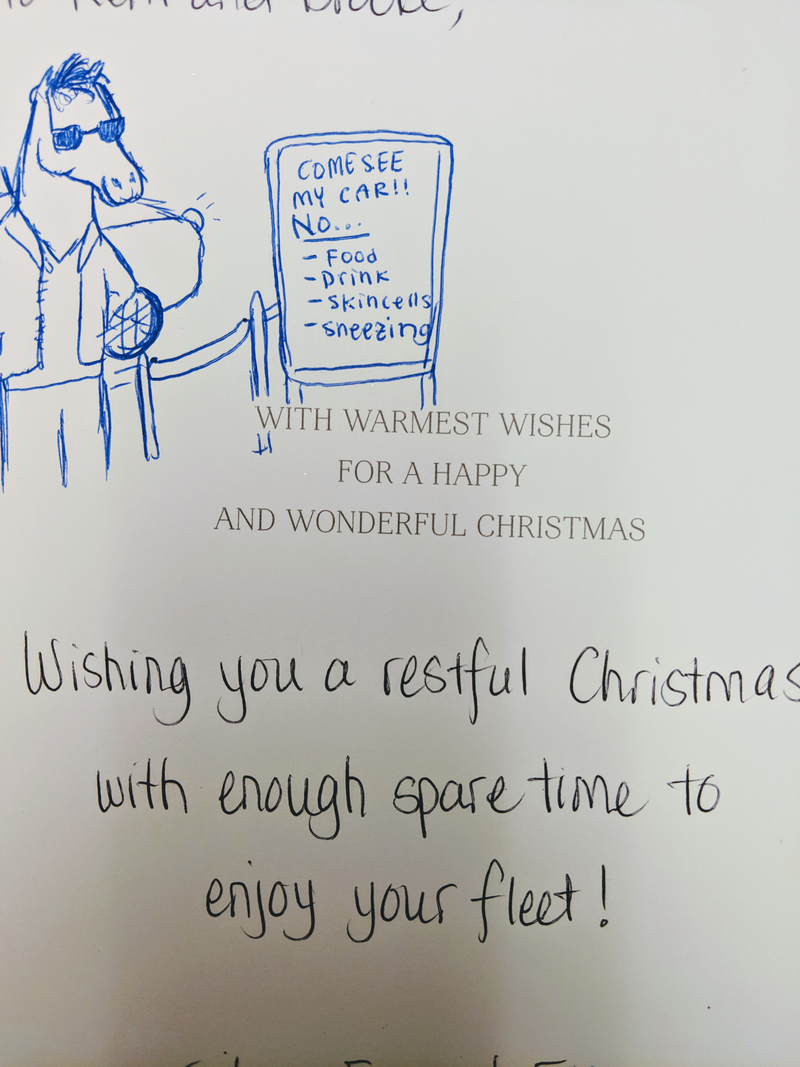 and
COME SEE
MY CAR!!
NO...
- Food
- Drink
- skincells
- sneezing
WITH WARMEST WISHES
FOR A HAPPY
AND WONDERFUL CHRISTMAS
Wishing you a restful Christmas
with enough spare time to
enjoy your fleet!